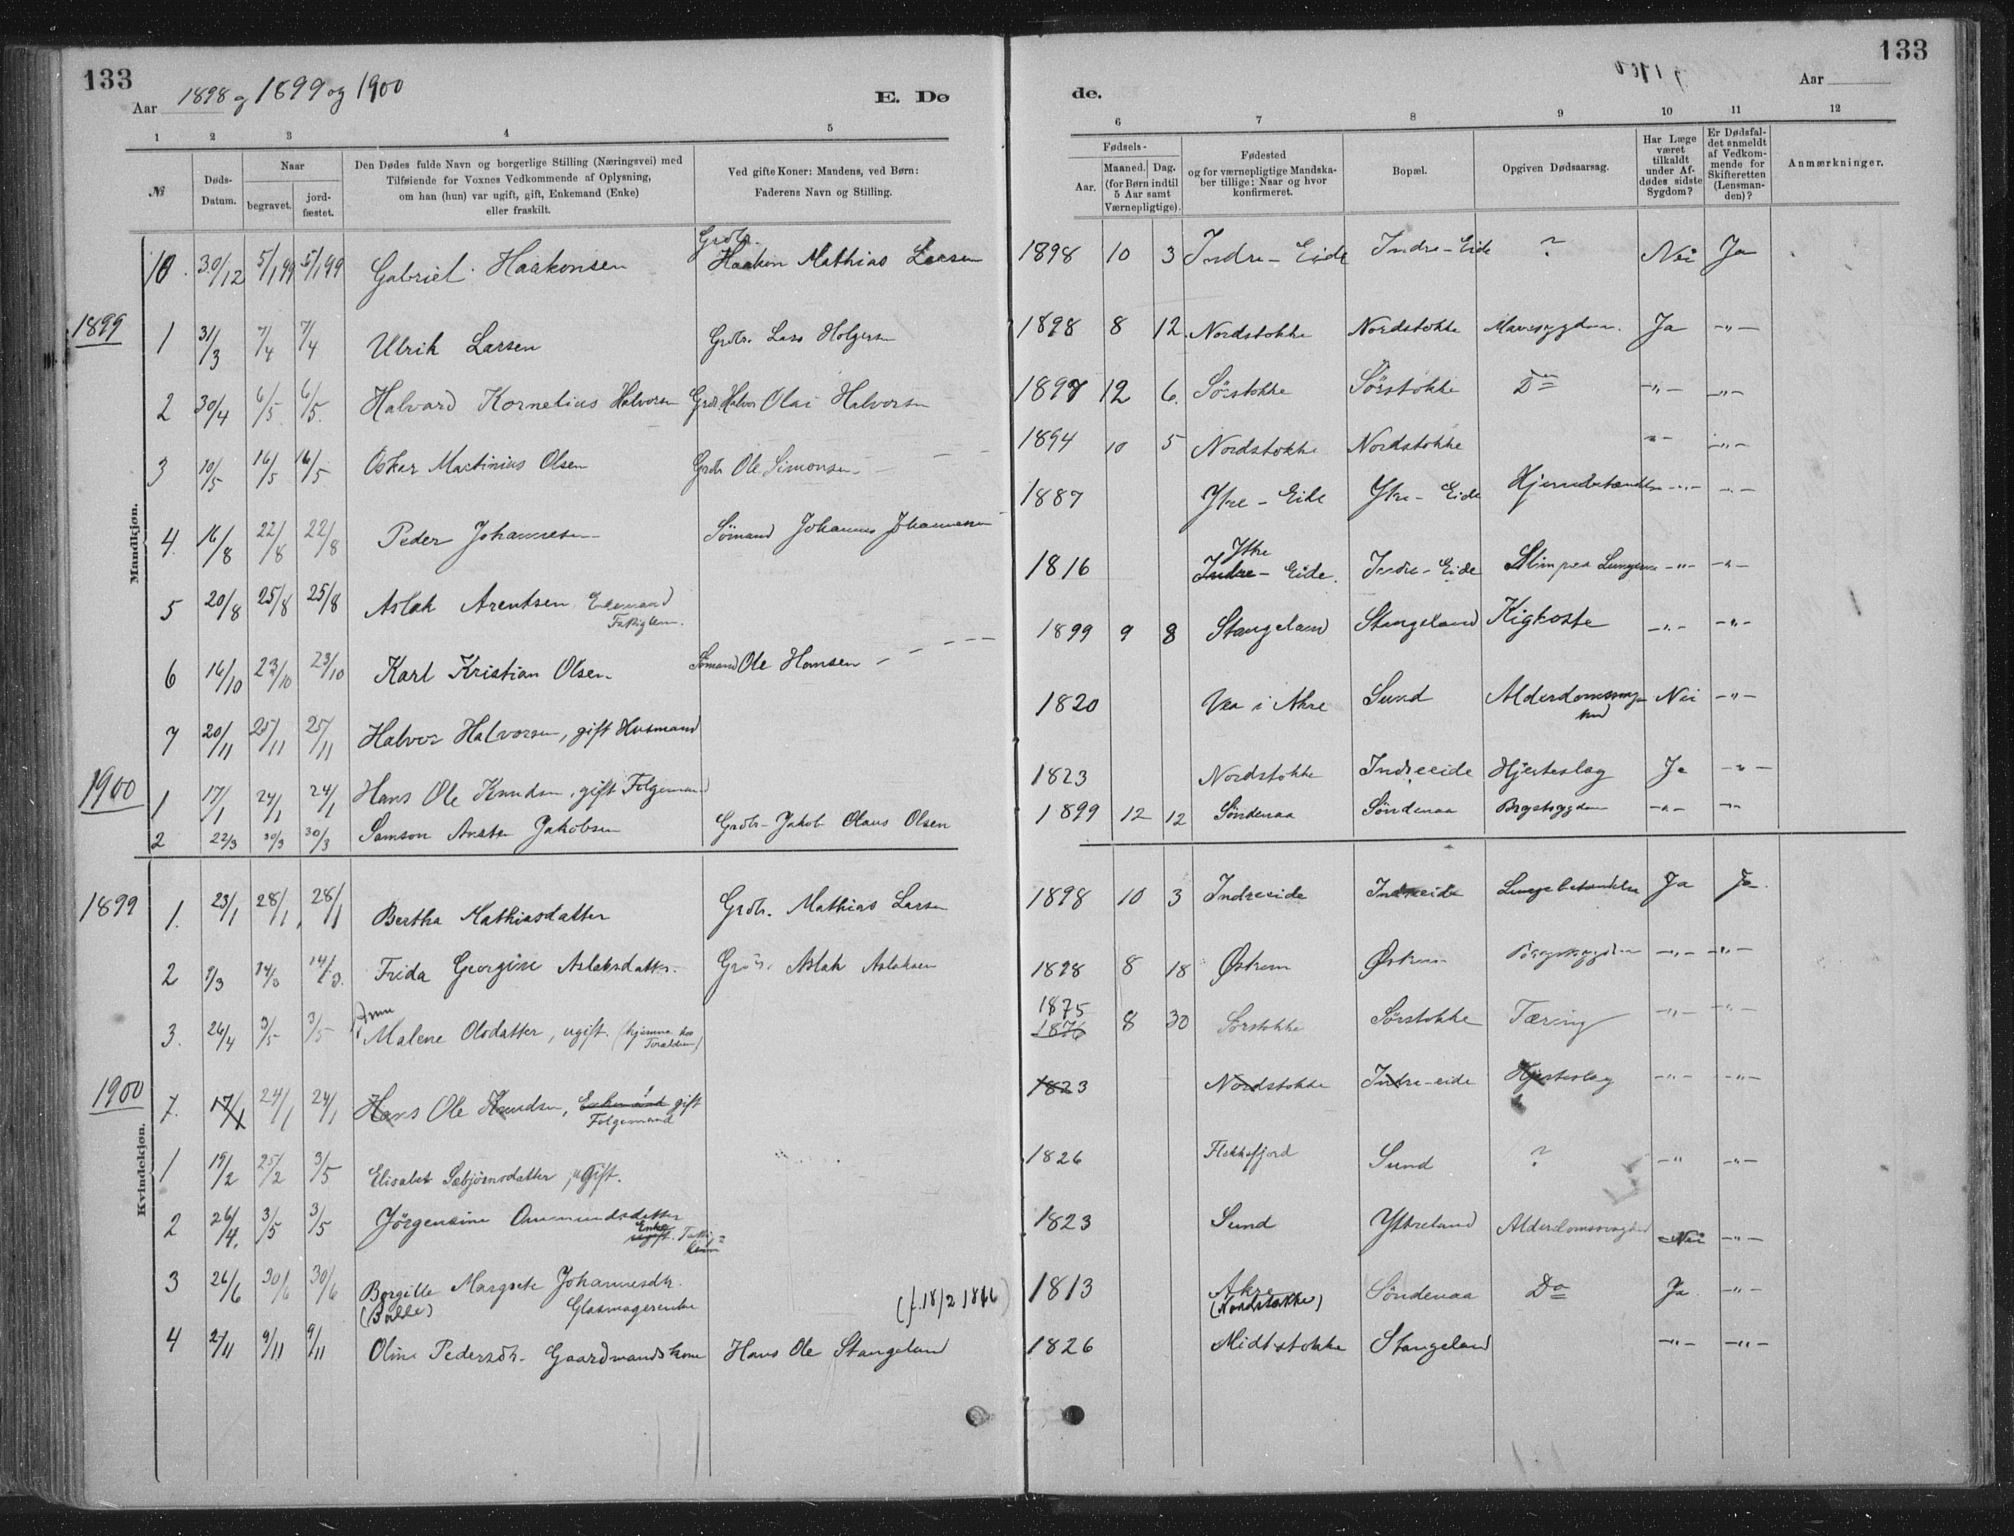 133
Aar 1898 og 1899 og 1900
E. Dø
de.
Aar
133
1 2 3 4 5 6 7 8 9 10 11 12
№ Døds-Datum. Naar begravet. jord-fæstet. Den Dødes fulde Navn og borgerlige Stilling (Næringsvei) med Tilføiende for Voxnes Vedkommende af Oplysning, om han (hun) var ugift, gift, Enkemand (Enke) eller fraskilt. Ved gifte Koner: Mandens, ved Børn: Faderens Navn og Stilling. Fødsels- Aar. Maaned. Dag. (for Børn indtil 5 Aar samt Værnepligtige). Fødested og for værnepligtige Mandskaber tillige: Naar og hvor konfirmeret. Bopæl. Opgiven Dødsaarsag. Har Læge været tilkaldt under Afdødes sidste Sygdom? Er Dødsfaldet anmeldt af Vedkommende for Skifteretten (Lensmanden)? Anmærkninger.
Mandkjøn.
10. 30/12 5/1 99 5/1 99 Gabriel Haakonsen Grdbr. Haakon Mathias Larsen 1898 10 3 Indre-Eide Indre-Eide ? Nei Ja
1899
1 31/3 7/4 7/4 Ulrik Larsen Grdbr. Lars Holgersen 1898 8 12. Nordstokke Nordstokke Mavesygdom. Ja -"-
2 30/4 6/5. 6/5. Halvard Kornelius Halvorsen Grdbr. Halvor Olai Halvorsen 1897 12 6. Sörstokke Sörstokke Do -"- -"-
3 10/5 16/5 16/5 Oskar Martinius Olsen Grdbr Ole Simonsen 1894 10 5 Nordstokke Nordstokke -"- -"-
4. 16/8 22/8 22/8 Peder Johannesen Sömand Johannes Johannesen 1887 Ytre-Eide Ytre-Eide Hjernebetændelse -"- -"-
5 20/8 25/8 25/8 Aslak Arentsen, Enkemand Fattiglem. 1816 Ytre Indre-Eide. Indre-Eide Slim paa Lungerne -"- -"-
6 16/10 23/10 23/10 Karl Kristian Olsen Sömand Ole Hansen 1899 9 8 Stangeland Stangeland Kighoste -"- -"-
7 20/11 25/11 25/11 Halvor Halvorsen, gift Husmand 1820 Vea i Akre Sund Alderdomssvaghed Nei -"-
1900
1 17/1 24/1 24/1 Hans Ole Knudsen, gift Folgemand 1823 Nordstokke Indreeide Hjerteslag Ja -"-
2 22/3 30/3 30/3 Samson Jakobsen Grdbr- Jakob Olaus Olsen 1899 12 12 Söndenaa Söndenaa Brystsygdom -"- -"-
Kvindekjøn.
1899
1. 23/1 28/1 28/1 Bertha Mathiasdatter Grdbr. Mathias Larsen 1898 10 3 Indreeide Indreeide Lungebetændelse Ja Ja.
2 9/3 14/3 14/3. Frida Georgine Aslaksdatter Grdbr. Aslak Aslaksen 1898 8 18 Østrem Østrem Brystsygdom -"- -"-
3. 26/4 3/5 3/5 Anna Malene Olsdatter, ugift. (hjemme hos Forældrene) 1875 1876 8 30 Sörstokke Sörstokke Tæring -"- -"-
1900
7. 17/1 24/1 24/1 Hans Ole Knudsen, Enkemand gift Folgemand 1823 Nordstokke Indre-eide Hjerteslag -"- -"-
1 19/2 25/2 3/5 Elisabet Sebjörnsdatter, ugift. 1826 Flekkefjord Sund ? -"- -"-
2 26/4. 3/5 3/5 Jörgensine Ommundsdatter Enke ugift. 1823 Sund Ytreland Alderdomssvaghed Nei -"-
3 26/6 30/6 30/6 Borgille Margrete Johannesdtr. (Bolle) Glasmagerenke (f. 18/2 1816) 1813 Akre (Nordstokke) Söndenaa Do Ja. -"-
4 2/11 9/11 9/11 Oline Pedersdtr. Gaardmandskone Hans Ole Stangeland 1826 Midtstokke Stangeland -"- -"-